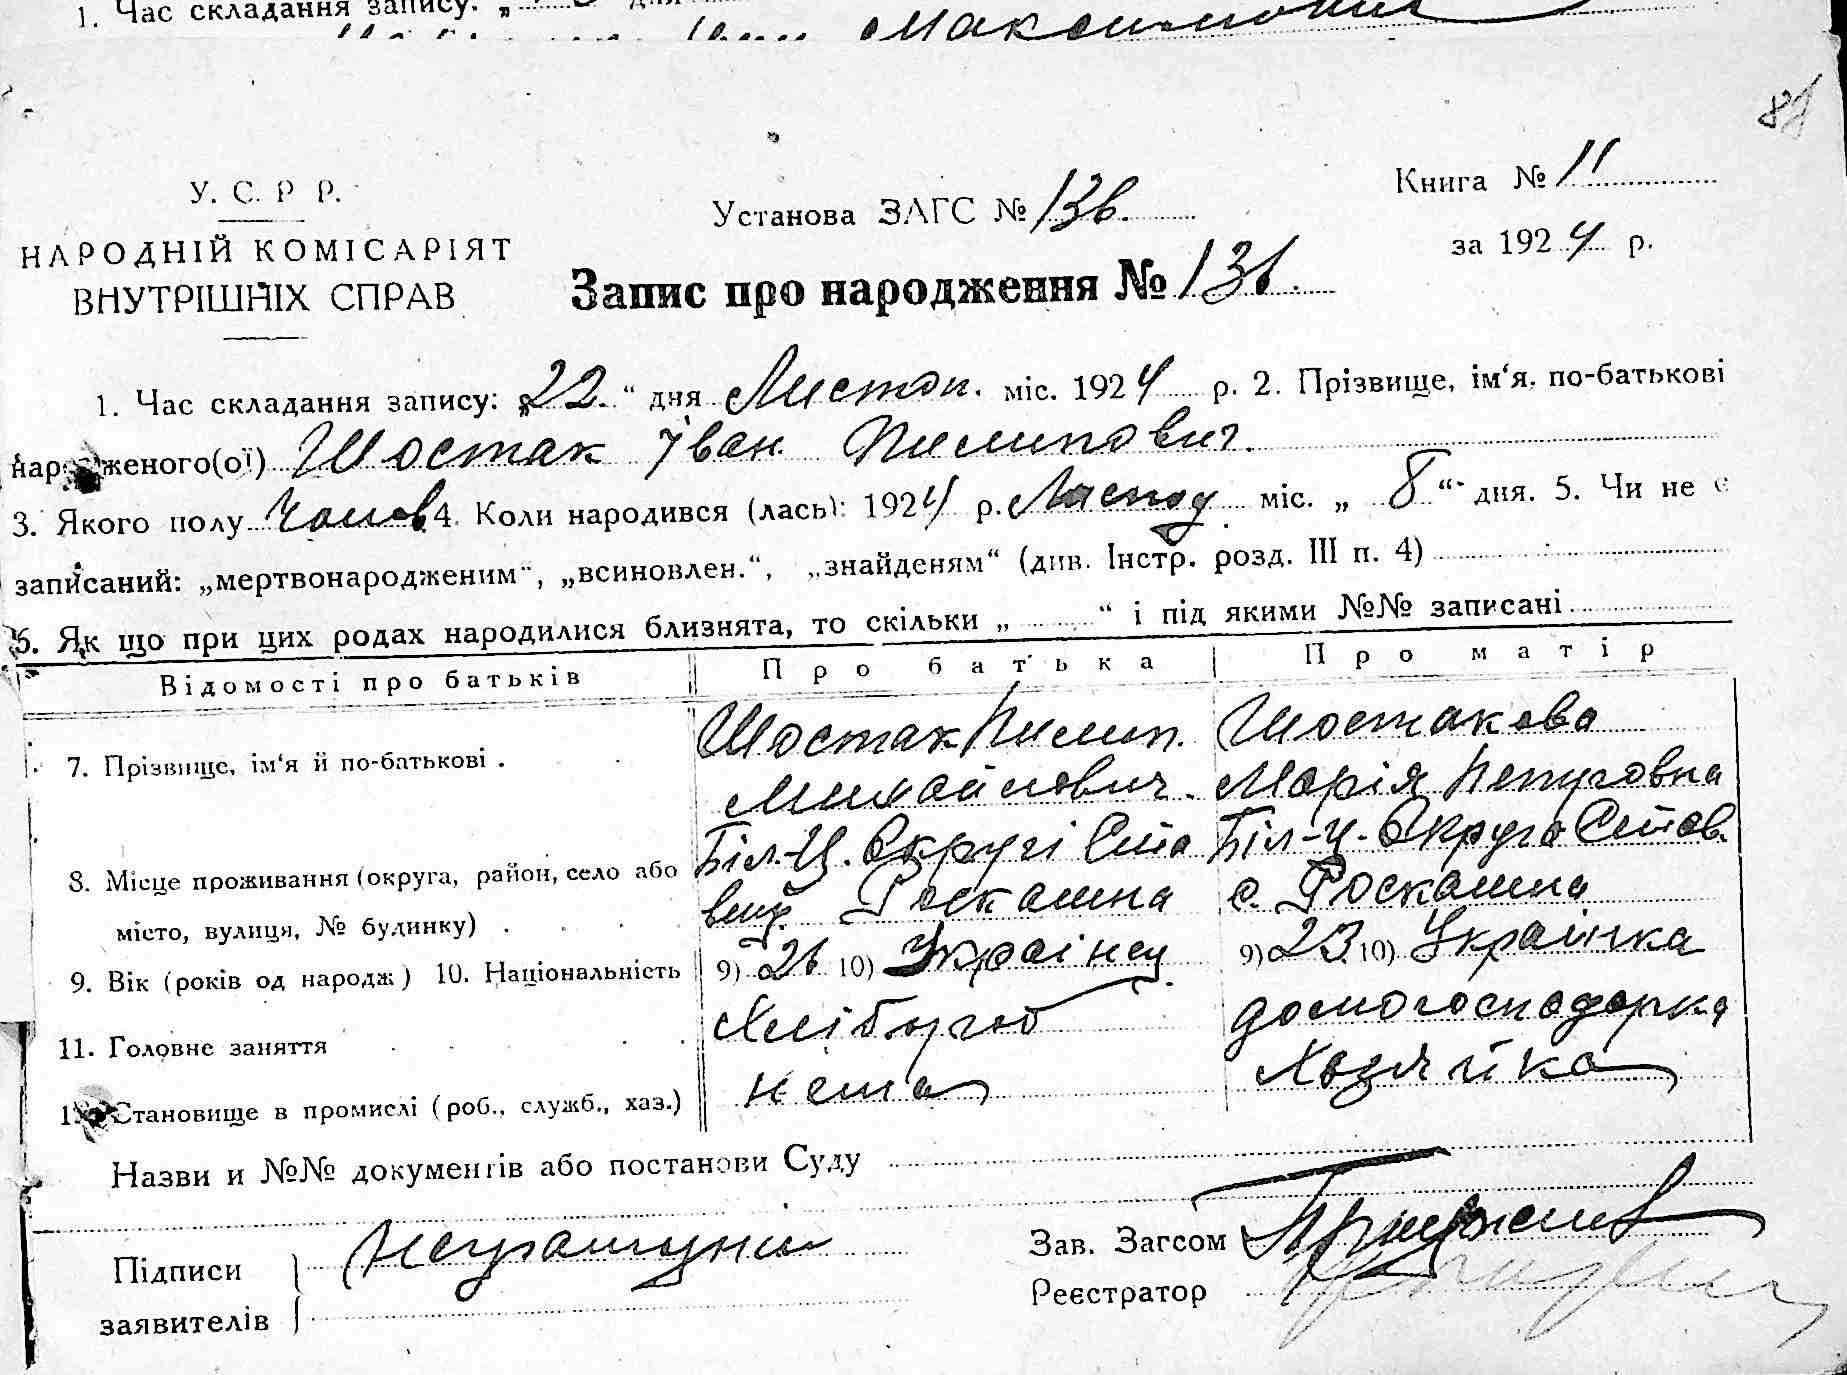 1. Час складання запису: „
Максимович
88
У. С. Р. Р.
НАРОДНІЙ КОМІСАРІЯТ
ВНУТРІШНІХ СПРАВ
Установа ЗАГС №
Книга № 11
за 1924 р.
Запис про народження №
1. Час складання запису: „22.“ дня Листоп. міс. 1924 р. 2. Прізвище, ім‘я, по-батькові
народженого(ої) Шостак Іван Пилипович.
3. Якого полу Чолов. 4. Коли народився (лась): 1924 р. Листод міс. „ 8 “ дня. 5. Чи не є
записаний: „мертвонародженим“, „всиновлен.“, „знайденям“ (див. Інстр. розд. III п. 4)
6. Як що при цих родах народилися близнята, то скільки „ “ і під якими №№ записані
Відомості про батьків Про батька Про матір
7. Прізвище, ім‘я й по-батькові . Шостак Пилип. Шостакова
Михайлович. Марія
8. Місце проживання (округа, район, село або Біл.-Ц. Округі Ста Біл-Ц. Округа Став.
місто, вулиця, № будинку) . Роскошна с. Роскошна
9. Вік (років од народж.) 10. Національність 9) 26 10) Українец 9) 23. 10) Українка
11. Головне заняття Хлібороб домогосподарка
12. Становище в промислі (роб., служб., хаз.) нема Хозяйка
Назви и №№ документів або постанови Суду
Підписи Неграмотний
заявителів
Зав. Загсом
Реєстратор